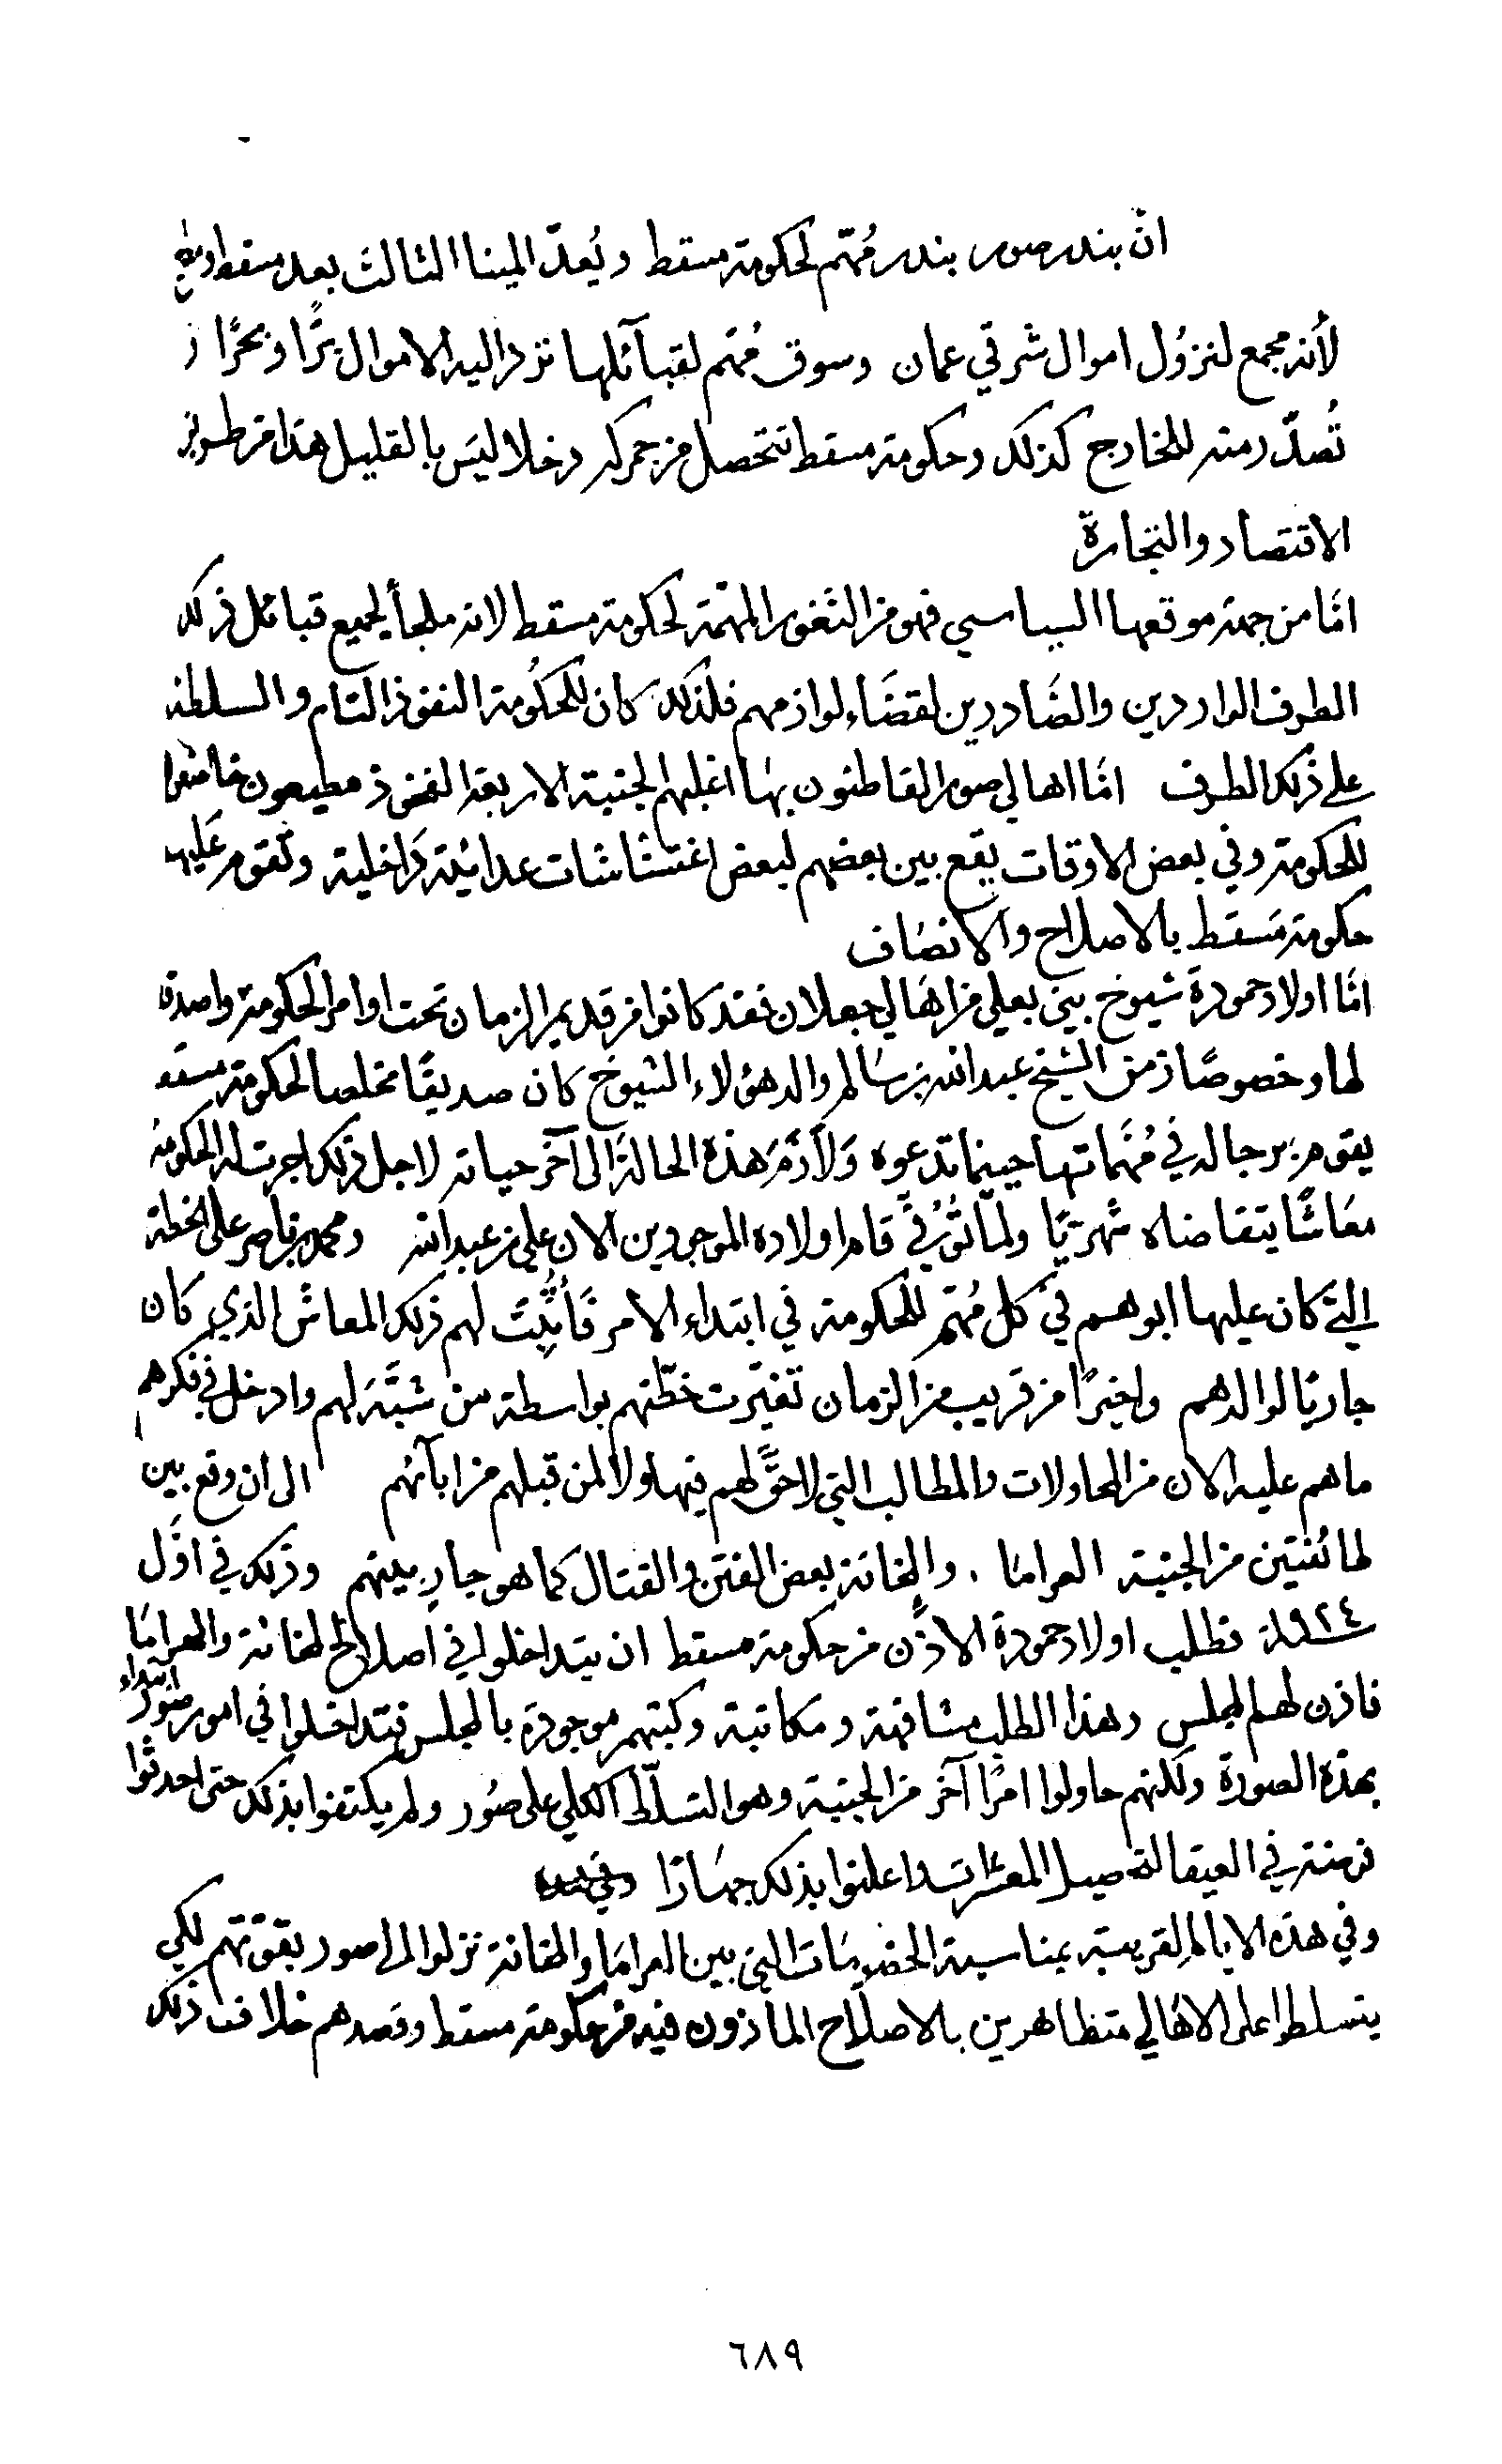 انّ بندر صور بندر مُهّم لحكومة مسقط ويُعدّ المينا الثالث بعد مسقط ومطرح
لأنه مجمع لنزوُل اموال شرقي عمان وسوق مُهّم لقبآئلها تزد اليه الاموال برًّا وبحرًا و
تُصدّر منه للخارج كذلك وحكومة مسقط تتحصل من جمركه دخلا ليَس بالقليل هذا من طريق
الاقتصاد والتجارة
امّا من جهة موقعها السياسي فهو من الثغور المهّمة لحكومة مسقط لانه ملجأ لجميع قبائل ذلك
الطرف الواردين والصَادرين لقضَاء لوازمهم فلذلك كان للحكُومة النفوذ التام والسلطة
على ذلك الطرف امّا اهالي صور القاطنون بهَا اغلبهم الجنبة الاربعة الفخوذ مطيعون خاضعوا
للحكومة وفي بعض الاوقات يقع بين بعضهم لبعض اغتشاشات عدائيّة دَاخلية وتقوم عَليهم
حكومة مَسقط بالاصلاح والانصَاف
امّا اولاد حمودة شيوخ بني بعلي من اهَالي جعلان فقد كانوا من قديم الزمان تحت اوامر الحكومة واصدقا
لها وخصوصًا زمن الشيخ عبدالله بن سَالم والد هؤلاء الشيوخ كان صديقًا مخلصا لحكومة مسقط
يقوم برجاله في مُهّماتها حينما تدعوه وَلازَمَ هذه الحالة الى آخر حياته لاجل ذلك اجرت له الحكومة
معَاشًا يتقاضاه شهريًا ولمّا تُوُفّيَ قام اولاده الموجودين الان علي بن عبدالله ومحمد بن ناصر على الخطة
التي كان عليها ابوهم في كل مُهّم للحكومة في ابتداء الامر فَأُثبِتَ لهم ذلك المعاش الذي كان
جاريًا لوالدهم واخيرًا من قريب من الزمان تغيّرت خطّتهم بواسطة من شبَّهَ لهم وادخل في فكرهم
ما هم عليه الان من المحاولات والمطالب التي لا حقَّ لهم فيها ولا لمن قبلهم من ابآئهم الى ان وقع بين
طائفتين من الجنبة العرامَا . والمخانة بعض الفتن والقتال كما هو جارٍ بينهم وذلك في اوّل
سنة ١٩٢٤ فطلب اولاد حمودة الاذن من حكومة مسقط ان يتداخلوا في اصلاح المخانة والعرامَا
فاذن لهم المجلس وهذا الطلب مشافهة ومكاتبة وكتبهم موجودة بالمجلس فتداخلوا في امور صُور ابتداء
بهذه الصورة ولكنهم حاولوا امرًا آخر من الجنبة وهو التسلّط الكلي على صُور ولم يكتفوا بذلك حتى احدثوا
فرضة في العيقا لتحصيل المعشّرات واعلنوا بذلك جهَارًا
وفي هذه الايام القريبة بمناسبة الخصُومَات التي بين العرامَا والمخانة نزلوا الى صور بقوّتهم لكي
يتسلطوا على الاهَالي متظاهرين بالاصلاح الماذون فيه من حكومة مسقط وقصدهم خلاف ذلك
٦٨٩